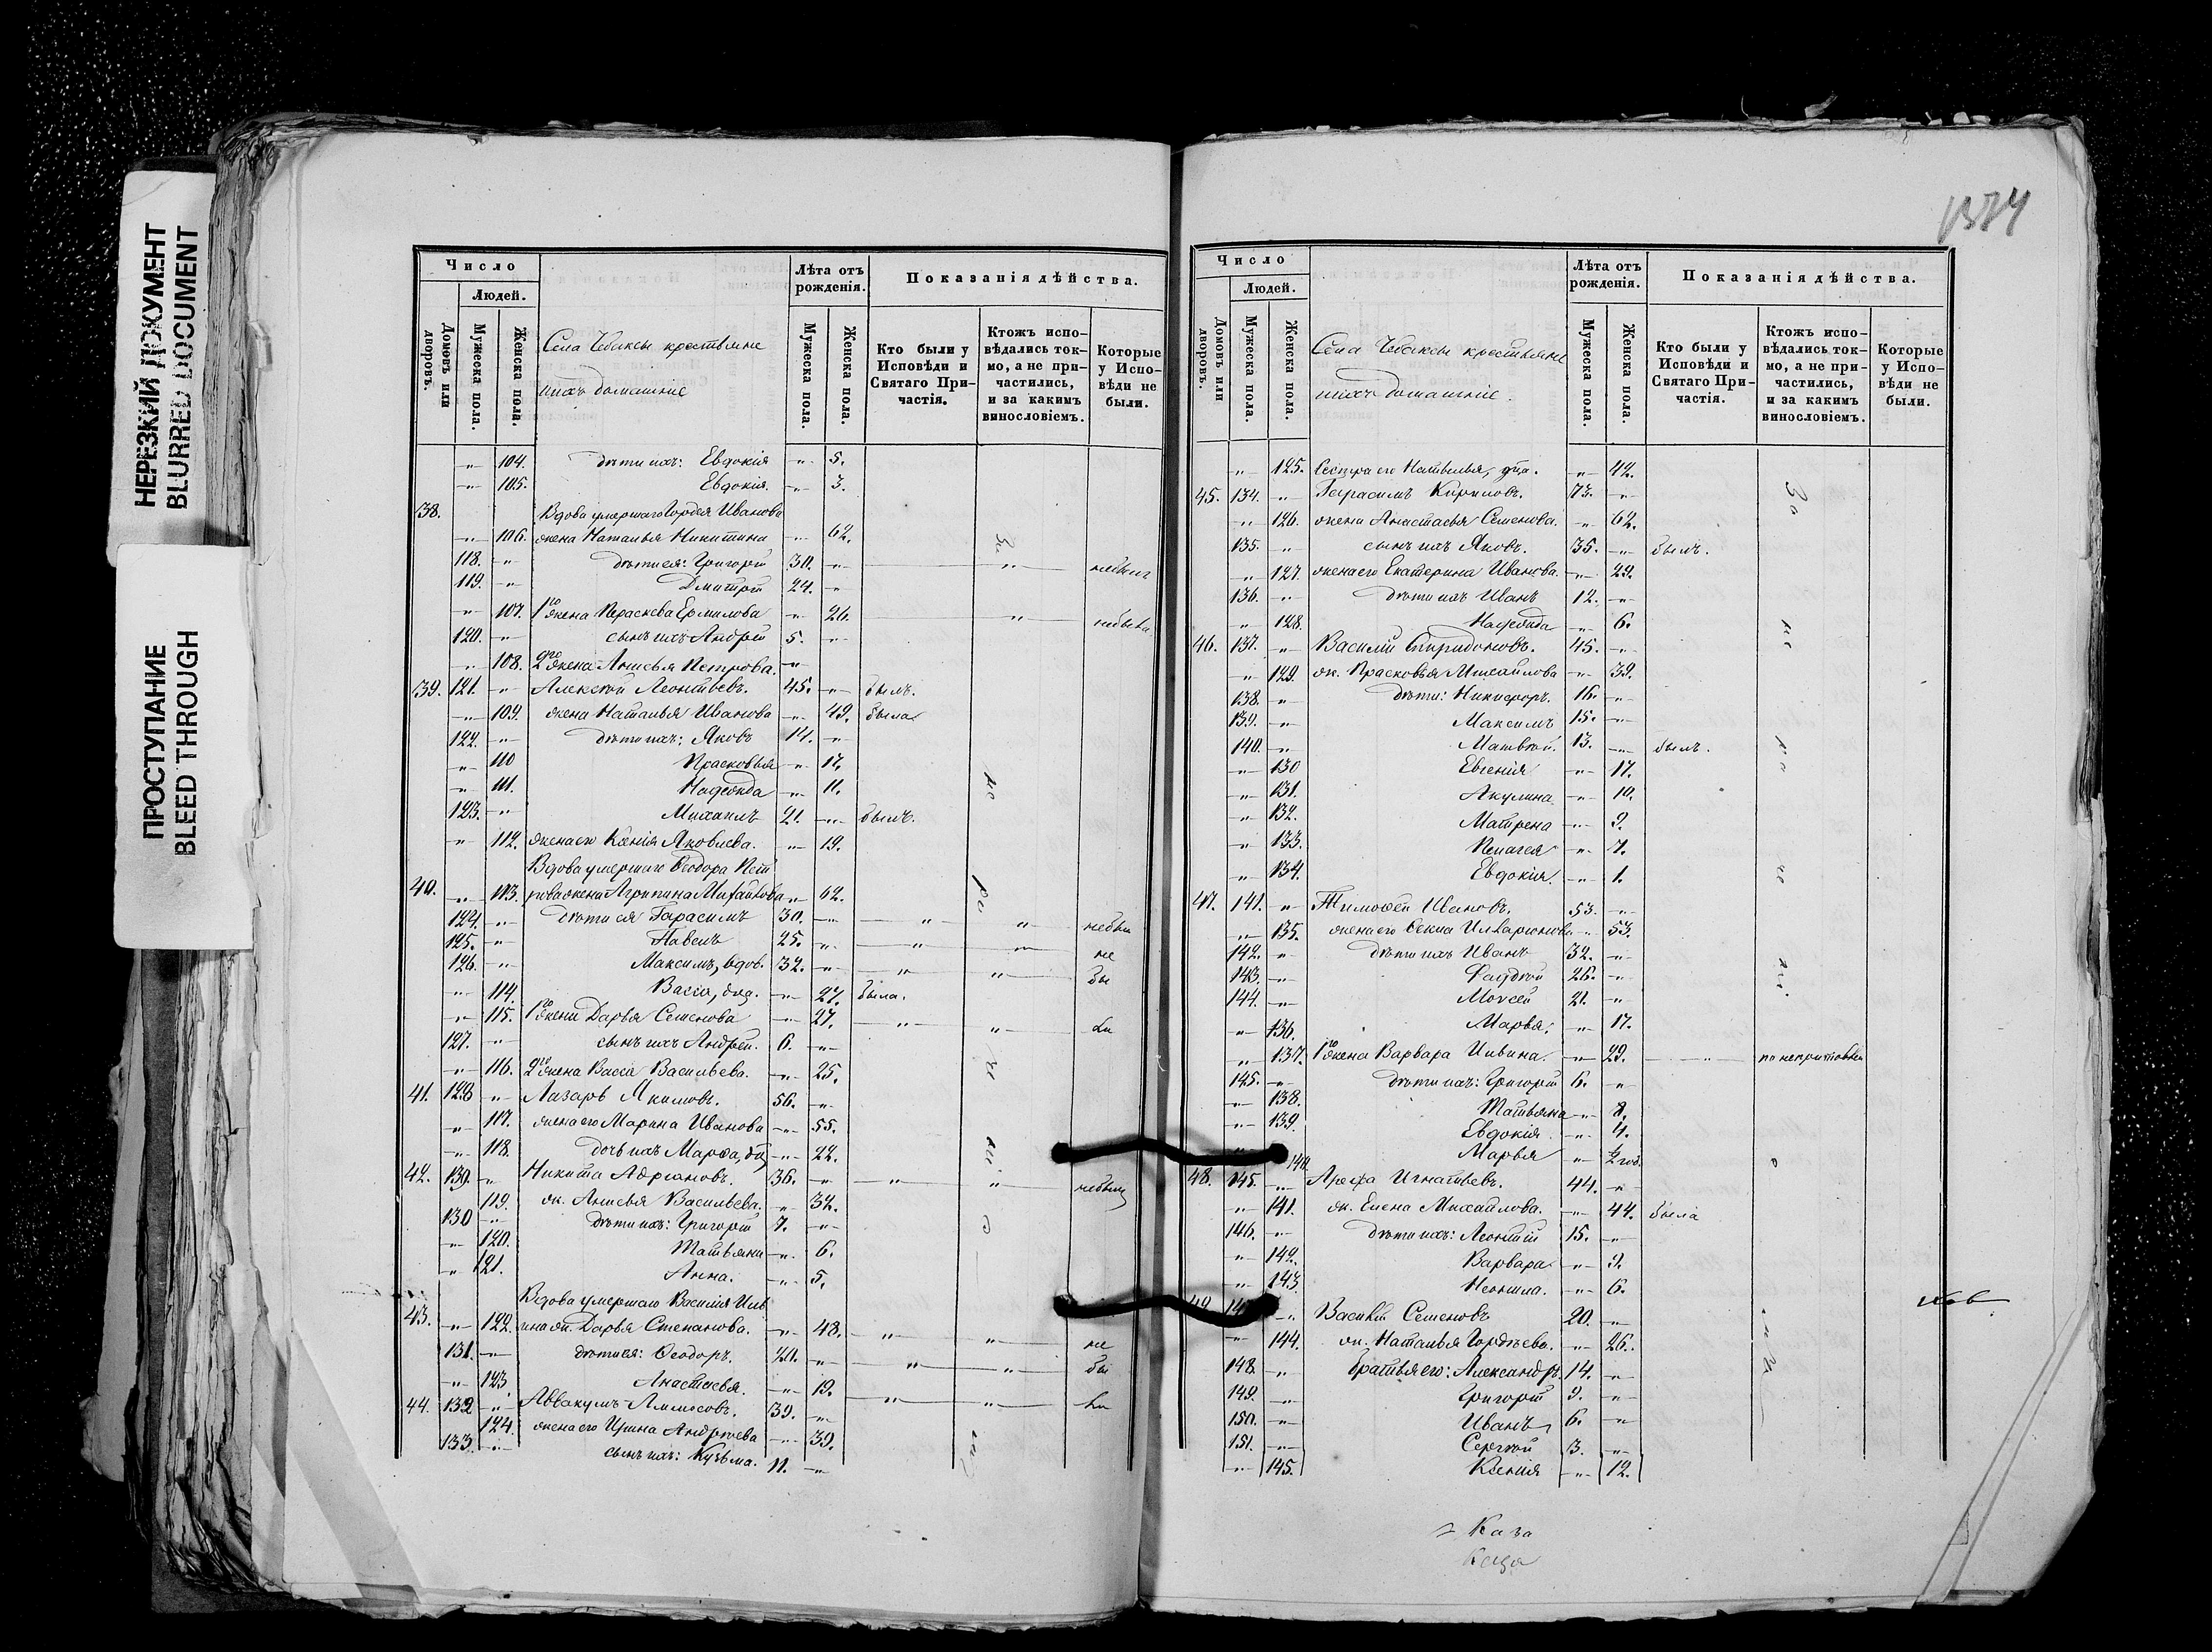 НЕРЕЗКИЙ ДОКУМЕНТ
BLURRED DOCUMENT
ПРОСТУПАНИЕ
BLEED THROUGH
Число
Людей.
Домовъ или дворовъ.
Мужеска пола.
Женска пола.
Села Чебаксы крестьяне
ихъ домашніе
Лѣта отъ рожденія.
Мужеска пола.
Женска пола.
Показанія дѣйства.
Кто были у Исповѣди и Святаго Причастія.
Ктожъ исповѣдались токмо, а не причастились, и за какимъ винословіемъ.
Которые у Исповѣди не были.
-"- 104. дѣти ихъ: Евдокія -"- 5.
-"- 105. Евдокія. -"- 3.
38. Вдова умершаго Гордея Иванова
-"- 106. жена Наталья Никитина -"- 62.
118. -"- дѣти ея: Григорій 30. -"- -"- небылъ
119. -"- Дмитрій 24. -"-
-"- 107. 1го жена Праскева Ермилова -"- 26. -"- небыла
120. -"- сынъ ихъ Андрей 5. -"-
-"- 108. 2го жена Анисья Петрова. -"-
39. 121. -"- Алексѣй Леонтьевъ. 45. -"- былъ.
-"- 109. жена Наталья Иванова -"- 49. была
122. -"- дѣти ихъ: Яковъ 14. -"-
-"- 110 Прасковья -"- 17.
-"- 111. Надежда -"- 11.
123. -"- Михаилъ 21. -"- былъ.
-"- 112. жена его Ксенія Яковлева. -"- 19.
Вдова умершаго Ѳеодора Пет
40. -"- 113. рова жена Агрипина Михайлова -"- 62.
124. -"- дѣти ея Гарасимъ 30. -"- -"- -"- небыли
125. -"- Павелъ 25. -"- -"- -"- не
126. -"- Максимъ, вдов. 32. -"- -"- -"- бы
-"- 114. Васса, дѣв. -"- 27. была.
-"- 115. 1го жена Дарья Семенова -"- 27. -"- -"- ли
127. -"- сынъ ихъ Андрей. 6. -"-
-"- 116. 2го жена Васса Васильева. -"- 25.
41. 128 -"- Лазарь Якимовъ. 56. -"-
-"- 117. жена его Марина Иванова -"- 55.
-"- 118. дочь ихъ Марѳа, дѣв. -"- 22.
42. 139. -"- Никита Адріановъ. 36. -"- -"- -"- небылъ
119. ж. Анисья Васильева. -"- 32.
130 -"- дѣти ихъ: Григорій 7. -"-
-"- 120. Татьяна -"- 6.
-"- 121. Анна. -"- 5.
Вдова умершаго Василія Иль
43. -"- 122. ина ж. Дарья Степанова. -"- 48. -"- -"- не
131. -"- дѣти ея: Ѳеодоръ. 20. -"- -"- -"- бы
-"- 123. Анастасья. -"- 19.
44. 132 -"- Аввакумъ 39. -"- -"- -"- ли
124. жена его Ирина Андреева -"- 39.
133. -"- сынъ ихъ: Кузьма. 11. -"-
1374
Число
Людей.
Домовъ или дворовъ.
Мужеска пола.
Женска пола.
Села Чебаксы крестьяне
ихъ домашніе.
Лѣта отъ рожденія.
Мужеска пола.
Женска пола.
Показанія дѣйства.
Кто были у Исповѣди и Святаго Причастія.
Ктожъ исповѣдались токмо, а не причастились, и за какимъ винословіемъ.
Которые у Исповѣди не были.
-"- 125. Сестра его Наталья, дѣв. -"- 42.
45. 134. -"- Герасимъ Кириловъ. 73. -"-
-"- 126. жена Анастасья Семенова. -"- 62.
135. -"- сынъ ихъ Яковъ. 35. -"- былъ.
-"- 127. жена его Екатерина Иванова. -"- 29.
136. -"- дѣти ихъ Иванъ 12. -"-
-"- 128. Надежда -"- 6.
46. 137. -"- Василій Спиридоновъ. 45. -"-
-"- 129. ж. Прасковья Михайлова -"- 39.
138. -"- дѣти: Никифоръ. 16. -"-
139. -"- Максимъ 15. -"-
140. -"- Матвѣй. 13. -"- былъ.
-"- 130 Евгенія -"- 17.
-"- 131. Акулина -"- 10.
-"- 132. Матрена -"- 9.
-"- 133. Пелагея -"- 7.
-"- 134. Евдокія. -"- 1.
47. 141. -"- Тимоѳей Ивановъ. 53. -"-
-"- 135. жена его Ѳекла Иларіонова -"- 53.
142. -"- дѣти ихъ Иванъ 32. -"-
143. -"- Фадѣй 26. -"-
144. -"- Моисей 21. -"-
-"- 136. Марья. -"- 17.
-"- 137. 1го жена Варвара Ильина. -"- 29. -"-
145. -"- дѣти ихъ: Григорій 6. -"-
-"- 138. Татьяна -"- 8.
-"- 139. Евдокія. -"- 4.
-"- 140. Марья -"- ½ год.
48. 145. -"- Арефа Игнатьевъ. 44. -"-
-"- 141. ж. Елена Михайлова. -"- 44. была
146. -"- дѣти ихъ: Леонтій 15. -"-
-"- 142. Варвара -"- 9.
-"- 143 Неонила. -"- 6.
-"- Василій Семеновъ 20. -"-
-"- 144. ж. Наталья Гордѣева. -"- 26.
148. -"- братья его: Александръ. 14. -"-
149. -"- Григорій 9. -"-
150. -"- Иванъ 6. -"-
151. -"- Сергѣй 3. -"-
-"- 145. Ксенія -"- 12.